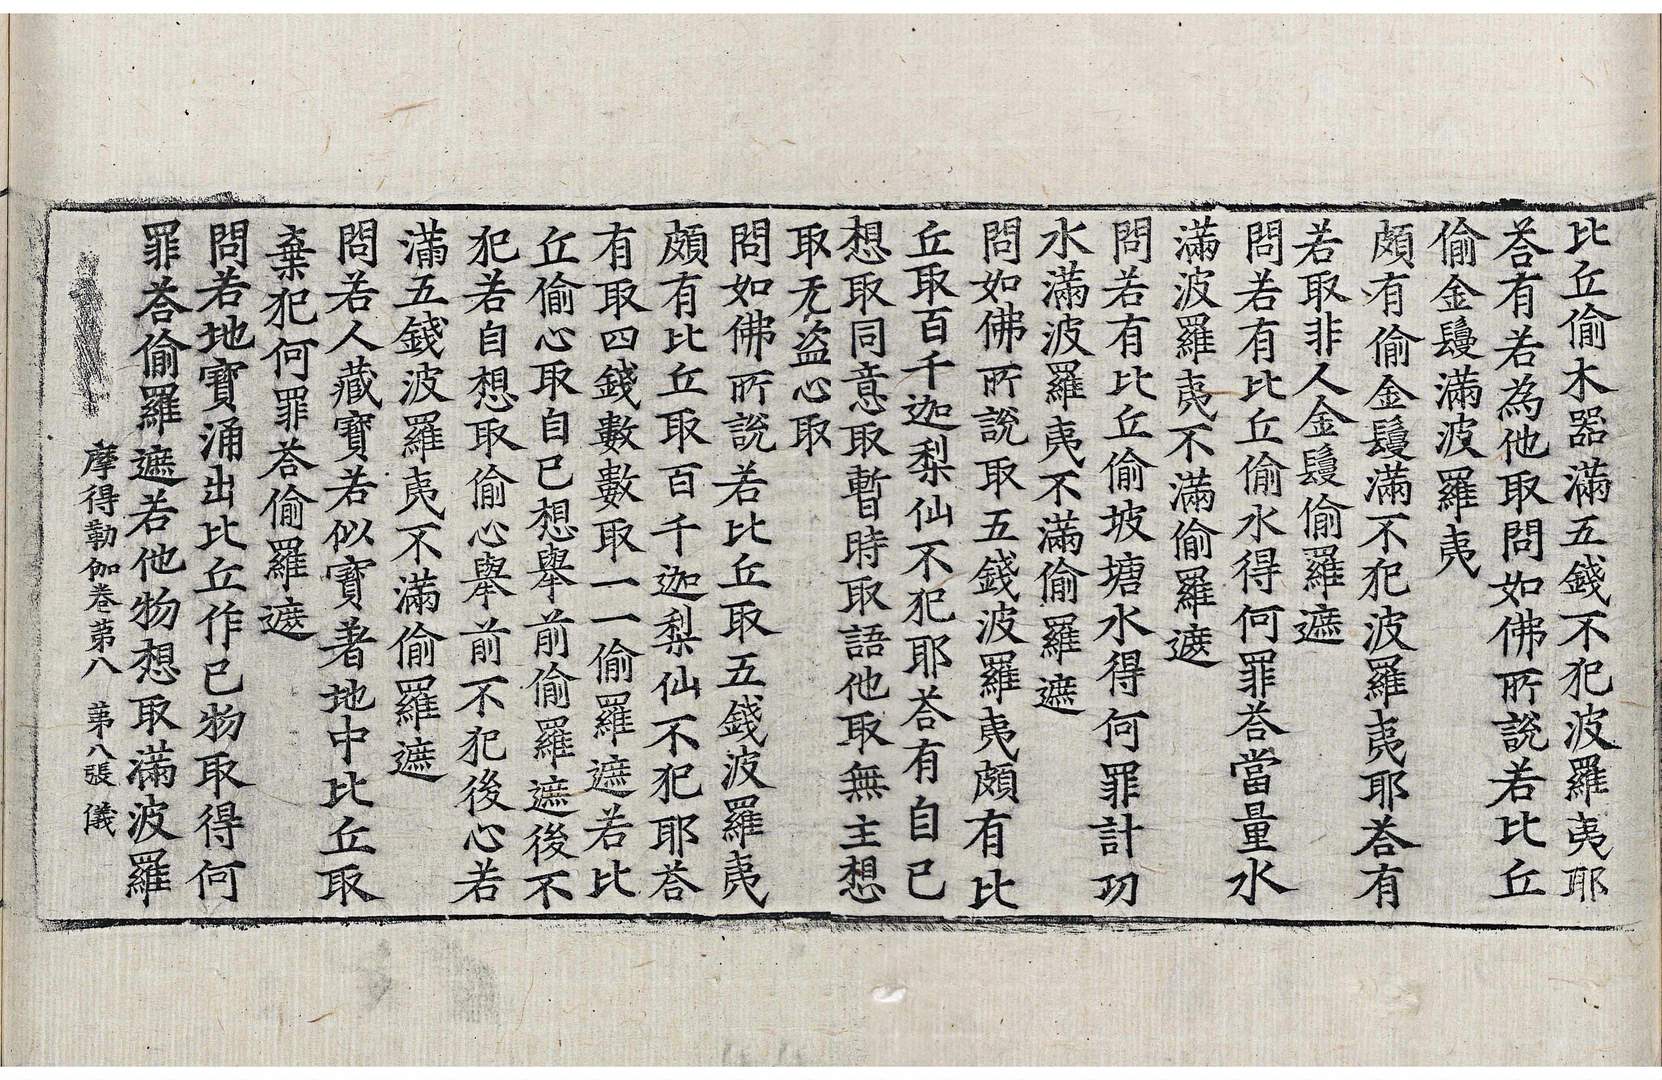 比丘偷木器滿五錢不犯波羅夷耶
荅有若為他取問如佛所說若比丘
偷金鬘滿波羅夷
頗有偷金鬘滿不犯波羅夷耶荅有
若取非人金鬘偷羅遮
問若有比丘偷水得何罪荅當量水
滿波羅夷不滿偷羅遮
問若有比丘偷坡塘水得何罪計功
水滿波羅夷不滿偷羅遮
問如佛所說取五錢波羅夷頗有比
丘取百千迦梨仙不犯耶荅有自己
想取同意取暫時取語他取無主想
取无盜心取
問如佛所說若比丘取五錢波羅夷
頗有比丘取百千迦梨仙不犯耶荅
有取四錢數數取一一偷羅遮若比
丘偷心取自已想舉前偷羅遮後不
犯若自想取偷心舉前不犯後心若
滿五錢波羅夷不滿偷羅遮
問若人藏寶若似寶著地中比丘取
棄犯何罪荅偷羅遮
問若地寶涌出比丘作已物取得何
罪荅偷羅遮若他物想取滿波羅
摩得勒伽卷苐八 苐八張 儀